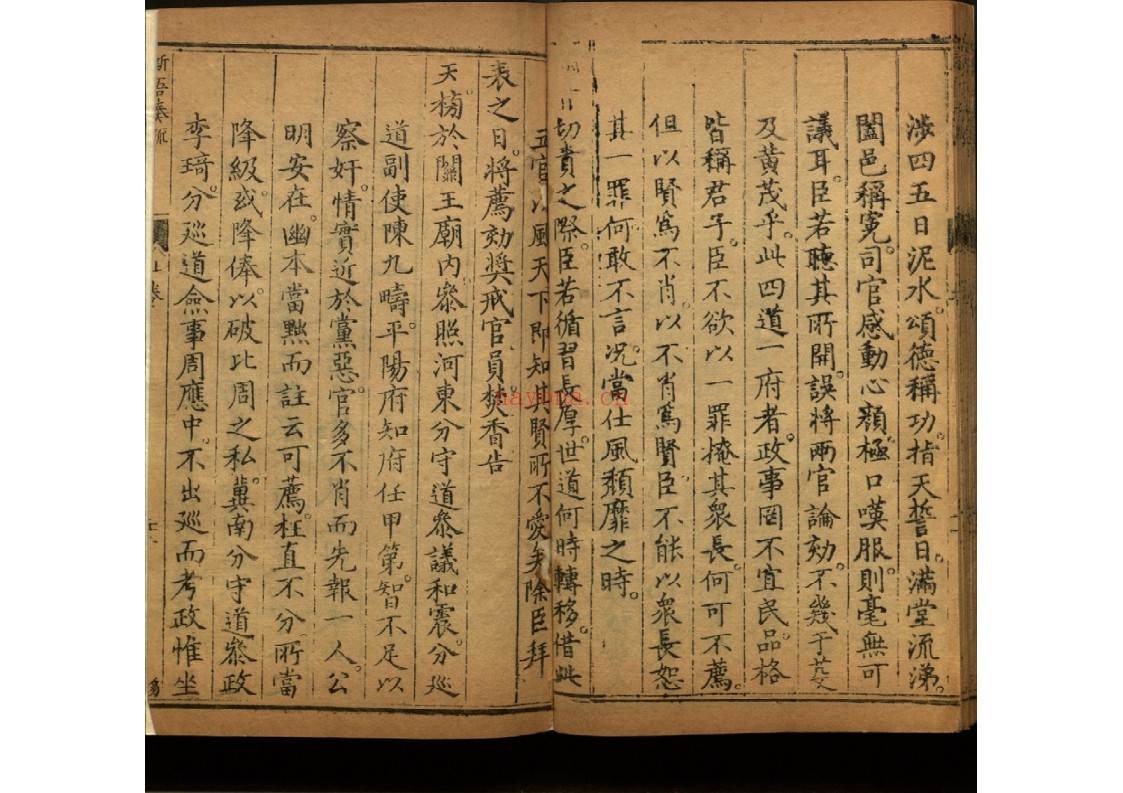 涉四五日泥水。頌德稱功。指天誓日。滿堂流涕。
闔邑稱冤。司官感動心顏。極口嘆服。則毫無可
議耳。臣若聽其所開。誤將兩官論劾。不幾于
及黃茂乎。此四道一府者。政事罔不宜民。品格
皆稱君子。臣不欲以一罪掩其衆長。何可不薦。
但以賢爲不肖。以不肖爲賢。臣不能以衆長恕
其一罪。何敢不言。況當仕風頹靡之時。
切責之際。臣若循習長厚。世道何時轉移。借此
五官以風天下。即知其賢所不愛矣。除臣拜
表之日。將薦劾獎戒官員。焚香告
天榜於關王廟內。叅照河東分守道叅議和震。分巡
道副使陳九疇。平陽府知府任甲第。智不足以
察奸。情實近於黨惡。官多不肖而先報一人。公
明安在。幽本當黜而註云可薦。枉直不分。所當
降級或降俸。以破比周之私。冀南分守道叅政
李琦。分巡道僉事周應中。不出巡而考政惟坐
新吾奏疏
hayhua.cn